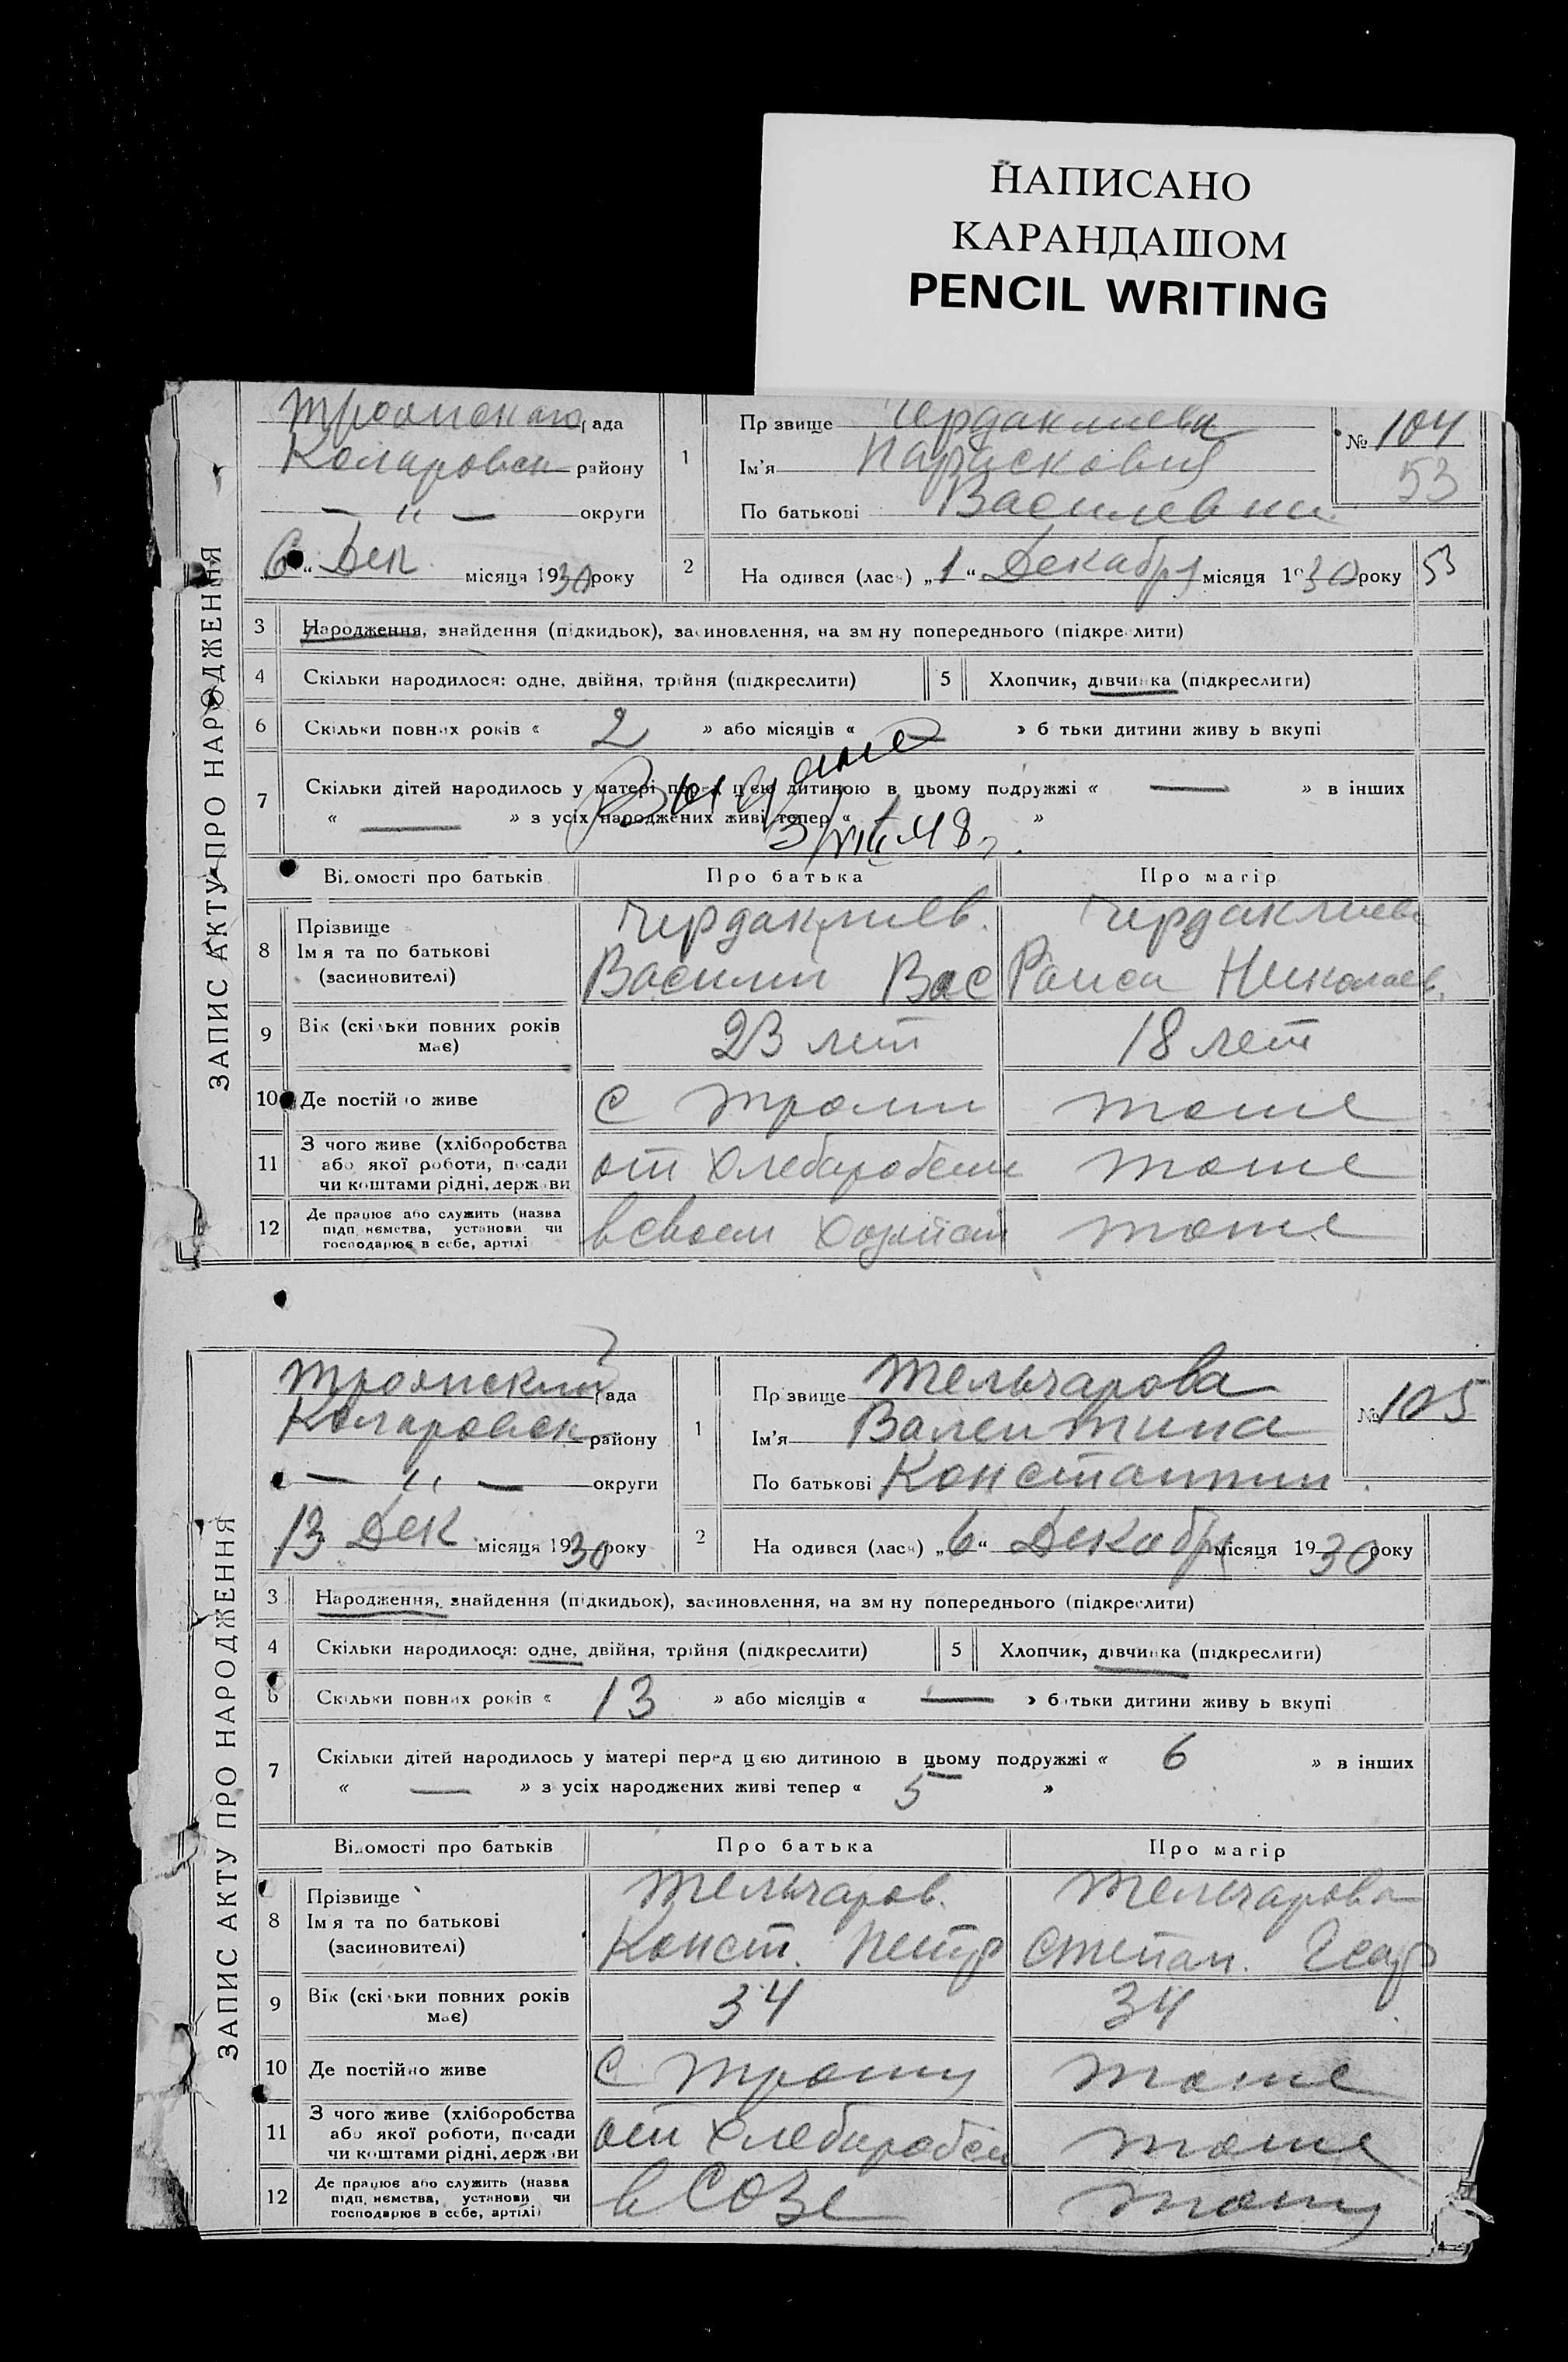 НАПИСАНО
КАРАНДАШОМ
PENCIL WRITING
ЗАПИС АКТУ ПРО НАРОДЖЕННЯ
Троянскаго рада
Коларовск району
— " — округи
„6“ Дек місяця 1930 року
1
Прізвище Чердаклиева
Ім'я Парасковия
По батькові Василевна
№ 104
53
2
На одився (лась) „1“ Декабря місяця 1930 року
53
3 Народження, знайдення (підкидьок), засиновлення, на зміну попереднього (підкреслити)
4 Скільки народилося: одне, двійня, трійня (підкреслити) 5 Хлопчик, дівчинка (підкреслити)
6 Скільки повних років « 2 » або місяців « — » батьки дитини живуть вкупі
7 Скільки дітей народилось у матері перед цією дитиною в цьому подружжі « — » в інших
« — » з усіх народжених живі тепер « »
3/VIII 48 г.
Відомості про батьків Про батька Про матір
8 Прізвище Чердаклиев. Чердаклиева
Ім'я та по батькові Василий Вас Раиса Николаев.
(засиновителі)
9 Вік (скільки повних років має) 23 лет 18 лет
10 Де постійно живе с Трояни тоже
11 З чого живе (хліборобства
або якої роботи, посади
чи коштами рідні, держави от хлебаробст тоже
12 Де працює або служить (назва
підприємства, установи чи
господарює в себе, артілі в своем хозяйст тоже
ЗАПИС АКТУ ПРО НАРОДЖЕННЯ
Троянский рада
Коларовск району
— " — округи
13 Дек місяця 1930 року
1
Прізвище Тельчарова
Ім'я Валентина
По батькові Константин
№ 105
2
На одився (лась) „6“ Декабря місяця 1930 року
3 Народження, знайдення (підкидьок), засиновлення, на зміну попереднього (підкреслити)
4 Скільки народилося: одне, двійня, трійня (підкреслити) 5 Хлопчик, дівчинка (підкреслити)
6 Скільки повних років « 13 » або місяців « — » батьки дитини живуть вкупі
7 Скільки дітей народилось у матері перед цією дитиною в цьому подружжі « 6 » в інших
« — » з усіх народжених живі тепер « 5 »
Відомості про батьків Про батька Про матір
8 Прізвище Тельчаров. Тельчарова
Ім'я та по батькові Конст. Петр Степан. Геор
(засиновителі)
9 Вік (скільки повних років має) 34 34
10 Де постійно живе с Трояны тоже
11 З чого живе (хліборобства
або якої роботи, посади
чи коштами рідні, держави от хлебаробст тоже
12 Де працює або служить (назва
підприємства, установи чи
господарює в себе, артілі) в СОЗе тоже